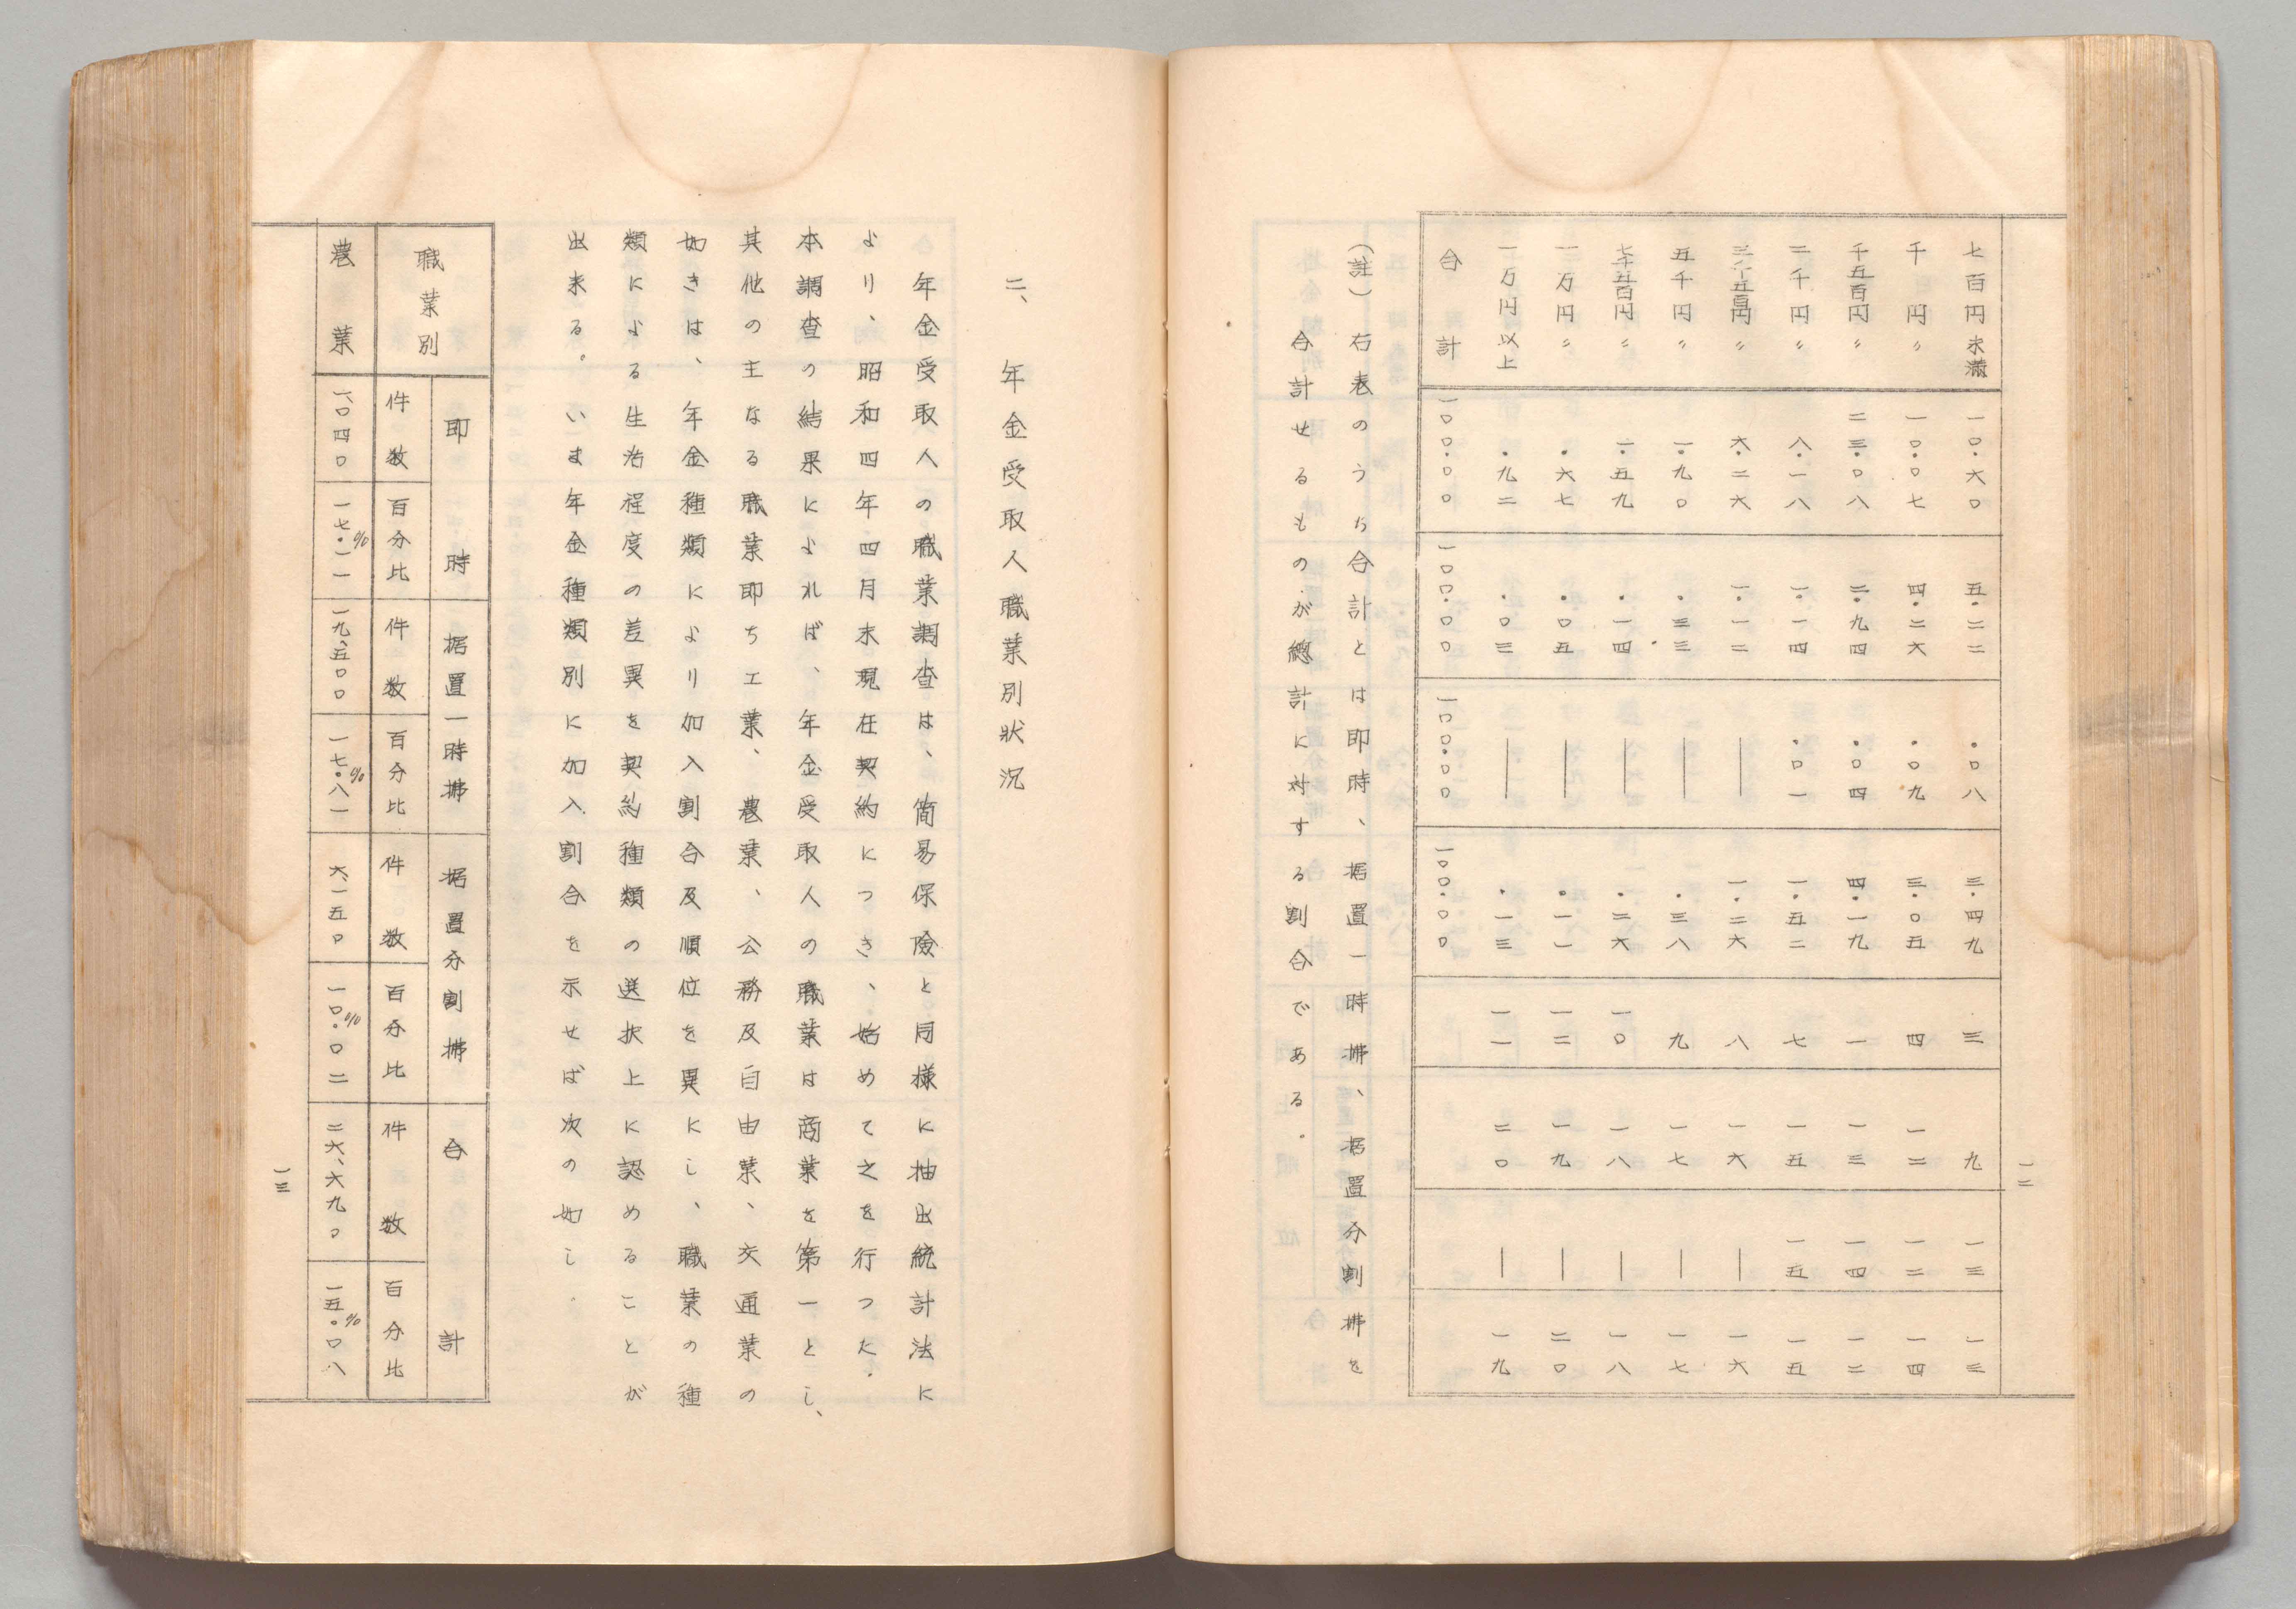 一二
七百円未満 一〇・六〇 五・二二 ・〇八 三・四九 三 九 一三 一三
千円〃 一〇・〇七 四・二六 ・〇九 三・〇五 四 一二 一二 一四
千五百円〃 二三・〇八 二・九四 ・〇四 四・一九 一 一三 一四 一二
二千円〃 八・一八 一・一四 ・〇一 一・五二 七 一五 一五 一五
三千五百円〃 六・二六 一・一二 ― 一・二六 八 一六 ― 一六
五千円〃 一・九〇 ・三三 ― ・三八 九 一七 ― 一七
七千五百円〃 一・五九 ・一四 ― ・二六 一〇 一八 ― 一八
一万円〃 ・六七 ・〇五 ― ・一一 一二 一九 ― 二〇
一万円以上 ・九二 ・〇三 ― ・一三 一一 二〇 ― 一九
合計 一〇〇・〇〇 一〇〇・〇〇 一〇〇・〇〇 一〇〇・〇〇
(註)右表のうち合計とは即時、据置一時拂、据置分割拂を
合計せるものが總計に対する割合である。
二、年金受取人職業別狀況
年金受取人の職業調査は、簡易保険と同様に抽出統計法に
より、昭和四年四月末現在契約につき、始めて之を行つた。
本調査の結果によれば、年金受取人の職業は商業を第一とし、
其他の主なる職業即ち工業、農業、公務及自由業、交通業の
如きは、年金種類により加入割合及順位を異にし、職業の種
類による生活程度の差異を契約種類の選択上に認めることが
出来る。いま年金種類別に加入割合を示せば次の如し。
職業別 即時 据置一時拂 据置分割拂 合計
件数 百分比 件数 百分比 件数 百分比 件数 百分比
農業 一、〇四〇 一七・一一% 一九、五〇〇 一七・八一% 六、一五〇 一〇・〇二% 二六、六九〇 一五・〇八%
一三